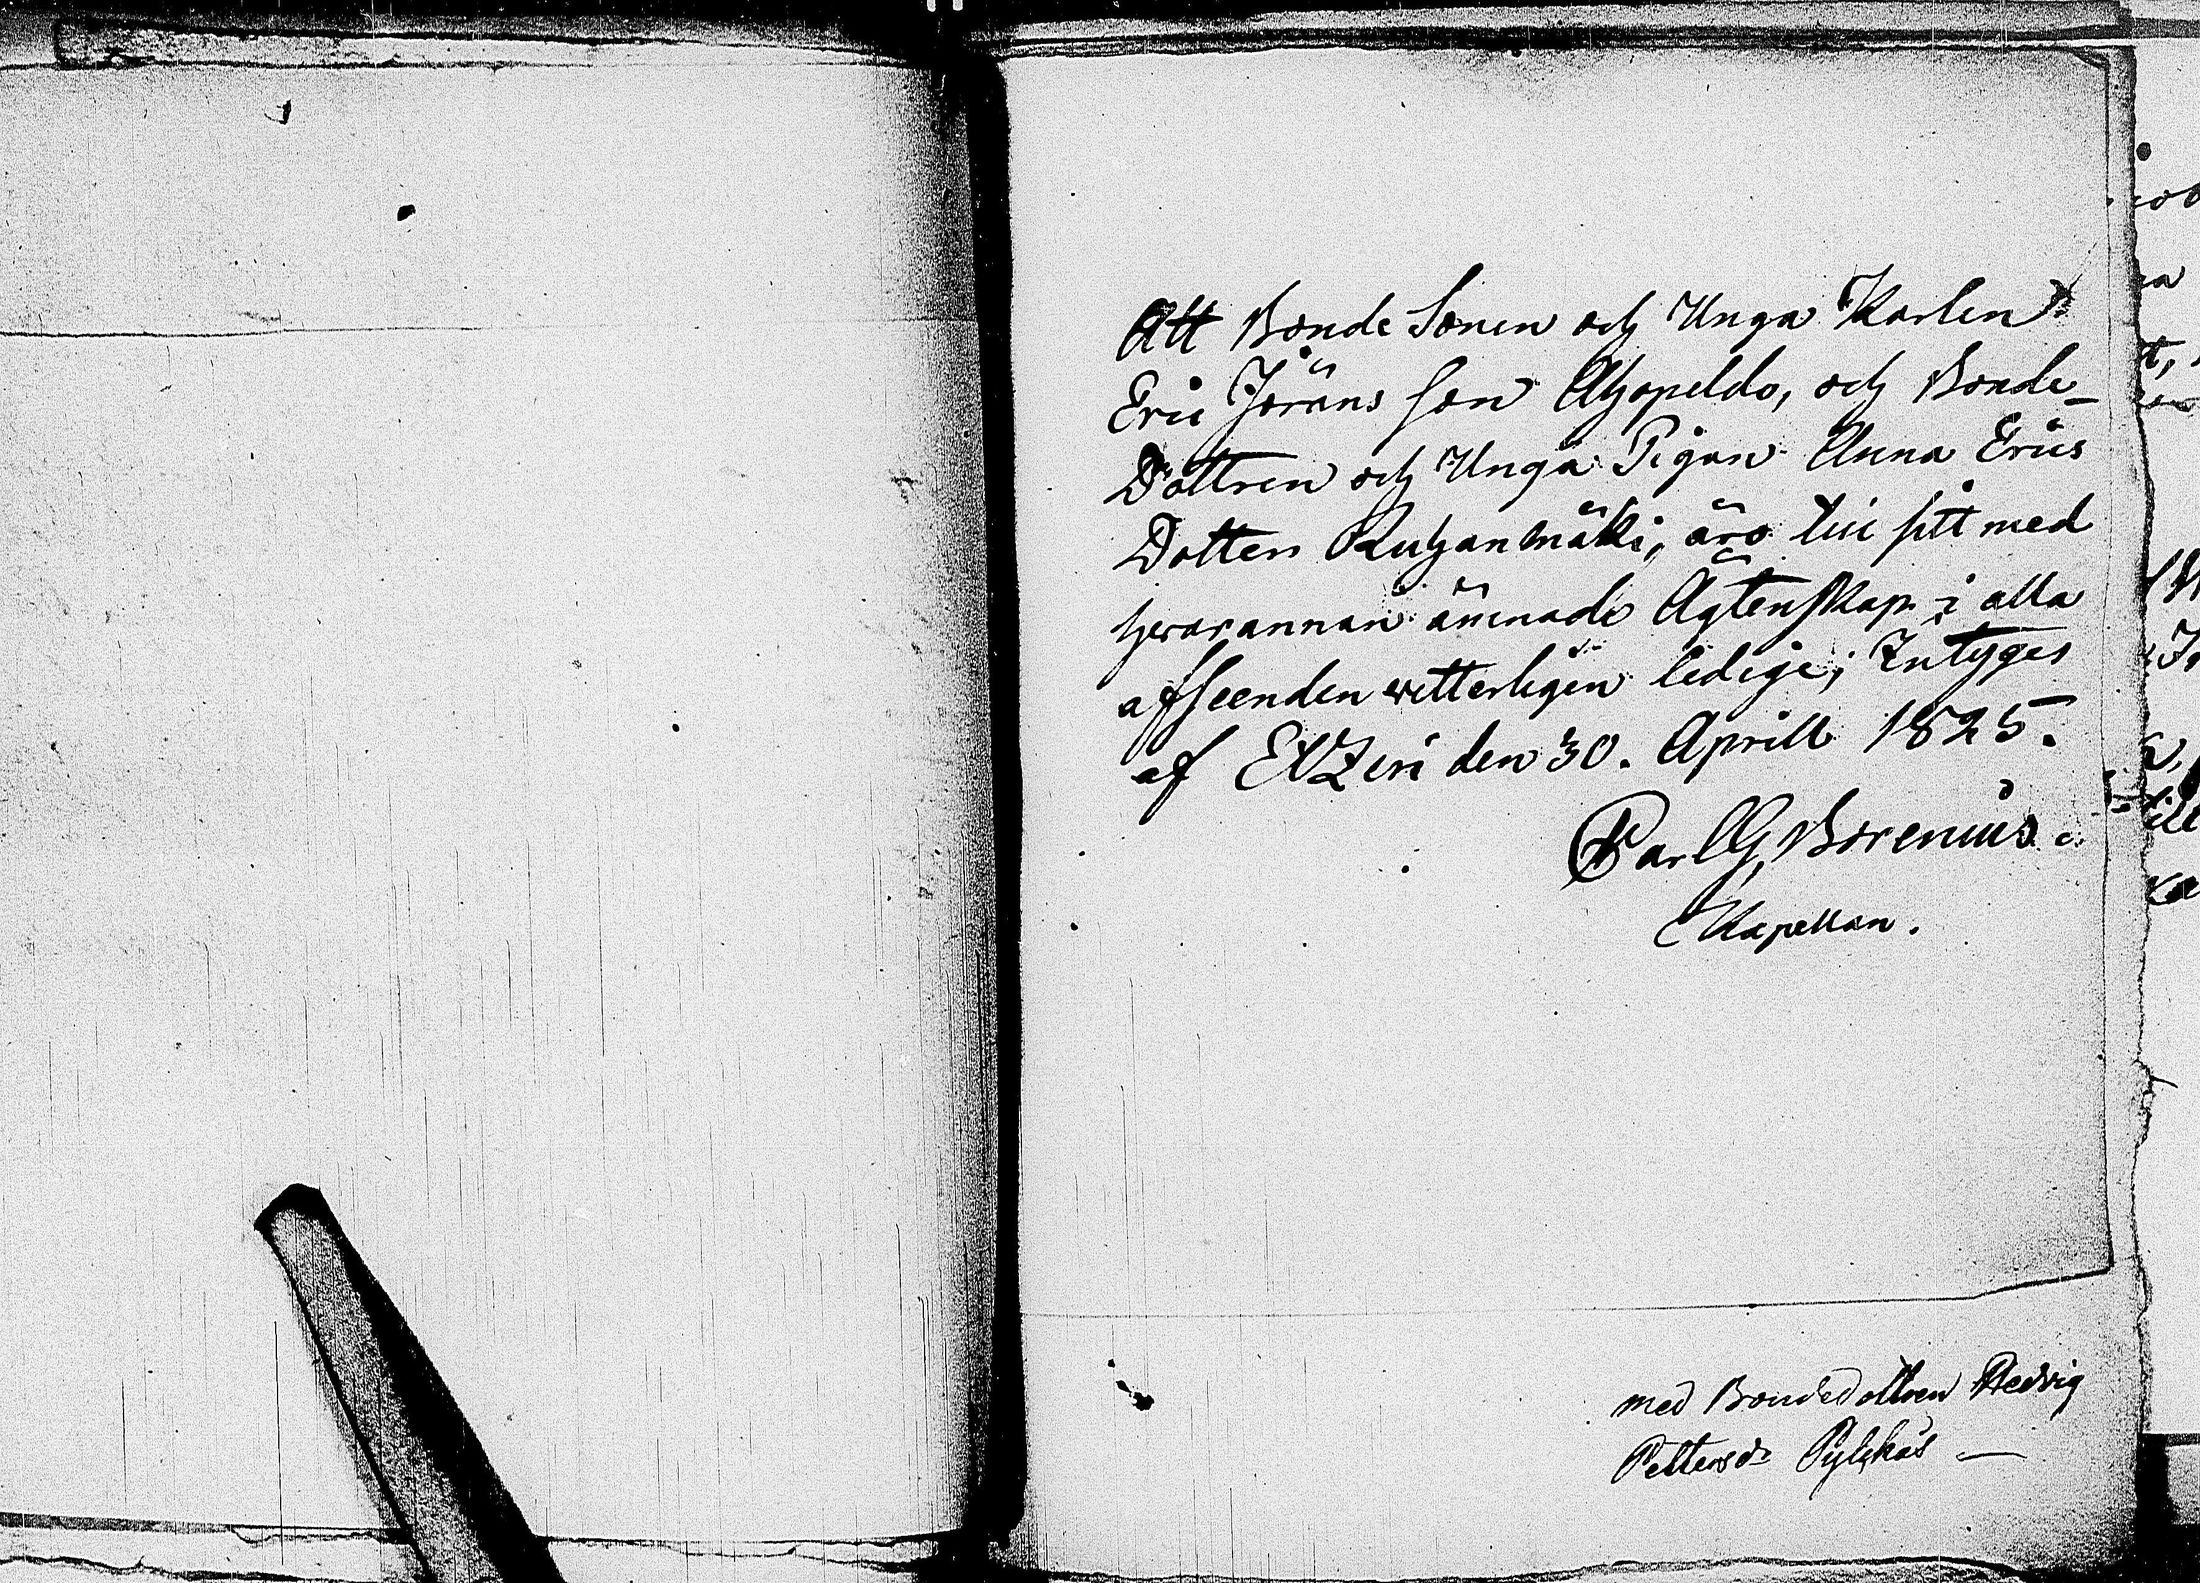 Att Bonde Sonen och Unga Karlen
Eric Jörans son Ahopeldo, och Bonde-
Dottren och Unga Pigan Anna Erics
Dotter Ruhanmäki, äro till sitt med
hwarannan ämnade Ägtenskap i alla
afseenden witterligen ledige; Intyges
af Etzeri den 30. Aprill 1825.
Carl G. Borenius.
Kapellan.
med Bondedottren Hedvig
Pettersdr Pylkäs